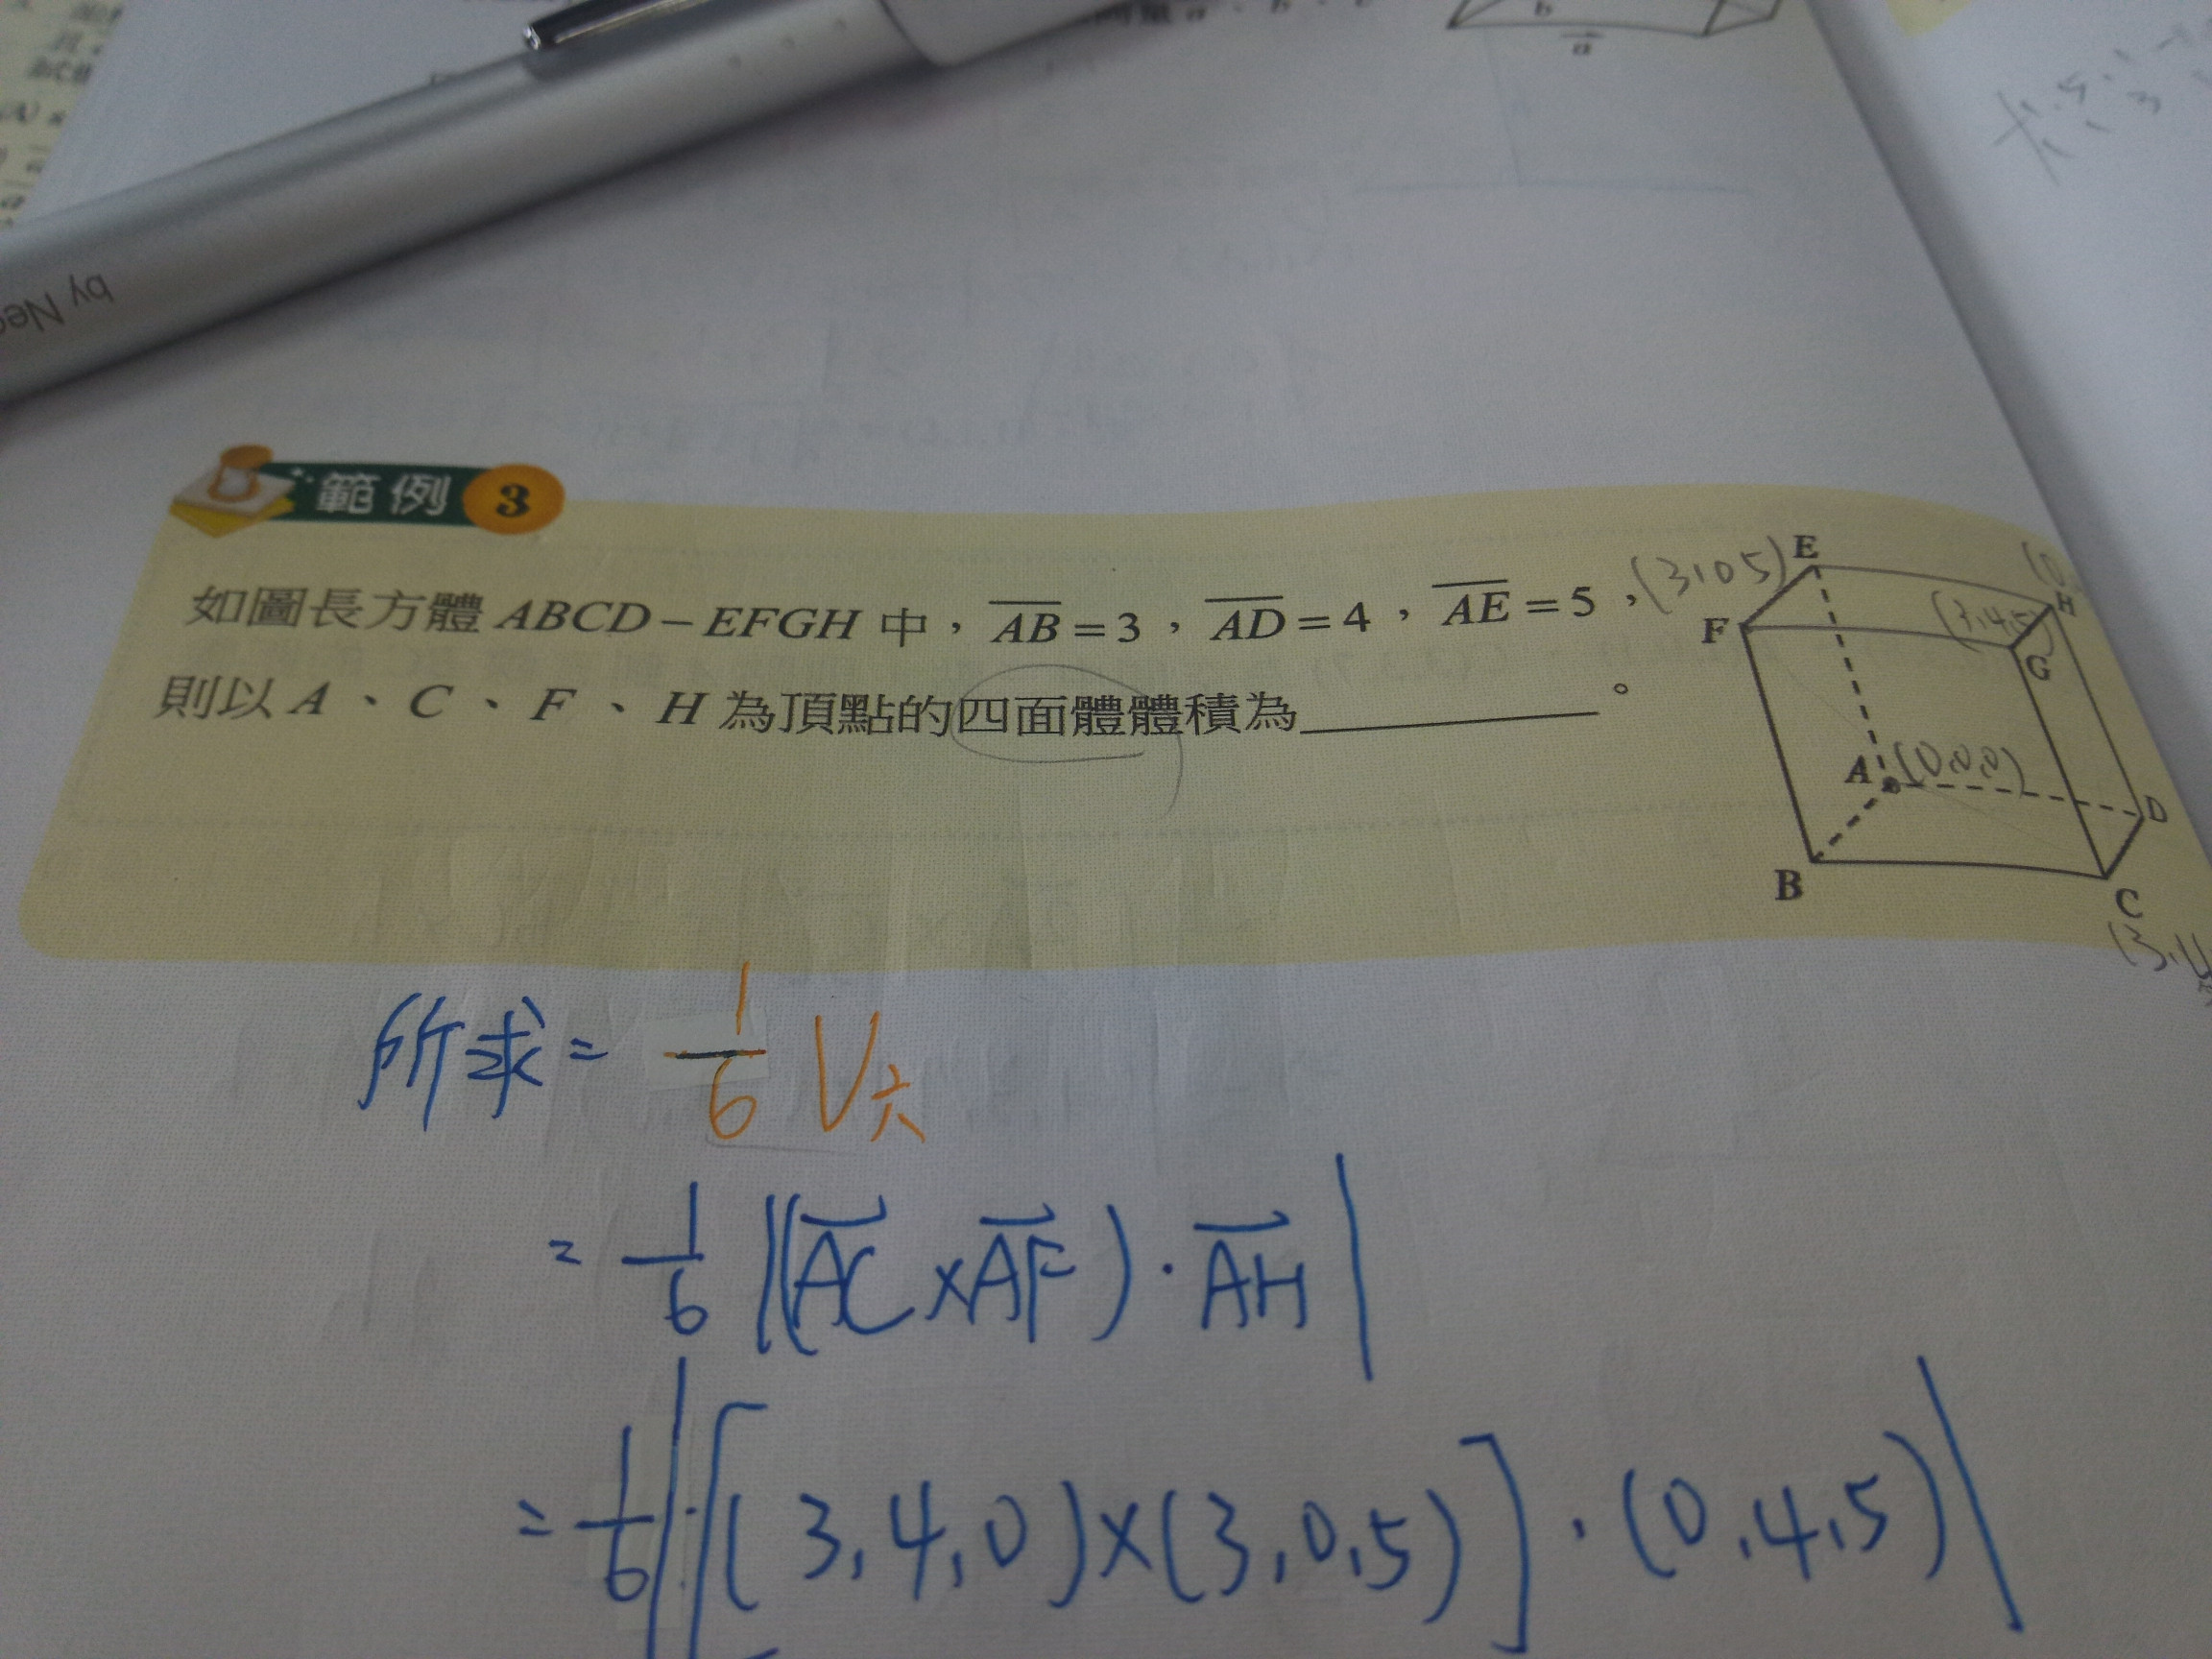 by Neo
b
a
範例 3
如圖長方體 ABCD－EFGH 中，AB＝3，AD＝4，AE＝5，
則以 A、C、F、H 為頂點的四面體體積為＿＿＿＿＿。
(3,0,5) E
H
F
(3,4,5)
G
A (0,0,0)
D
B
C
所求 = 1/6 V六
= 1/6 |(AC × AF)・AH|
= 1/6 |[(3,4,0)×(3,0,5)]・(0,4,5)|